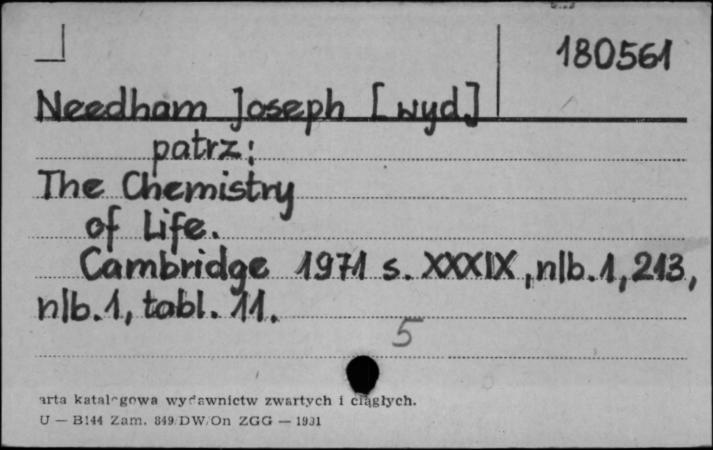 180561
Needham Joseph [wyd]
patrz:
The Chemistry
of Life.
Cambridge 1971 s. XXXIX, nlb.1, 213,
nlb.1, tabl. 11.
5
arta katalogowa wydawnictw zwartych i ciągłych.
U — B144 Zam. 849/DW/On ZGG — 1931